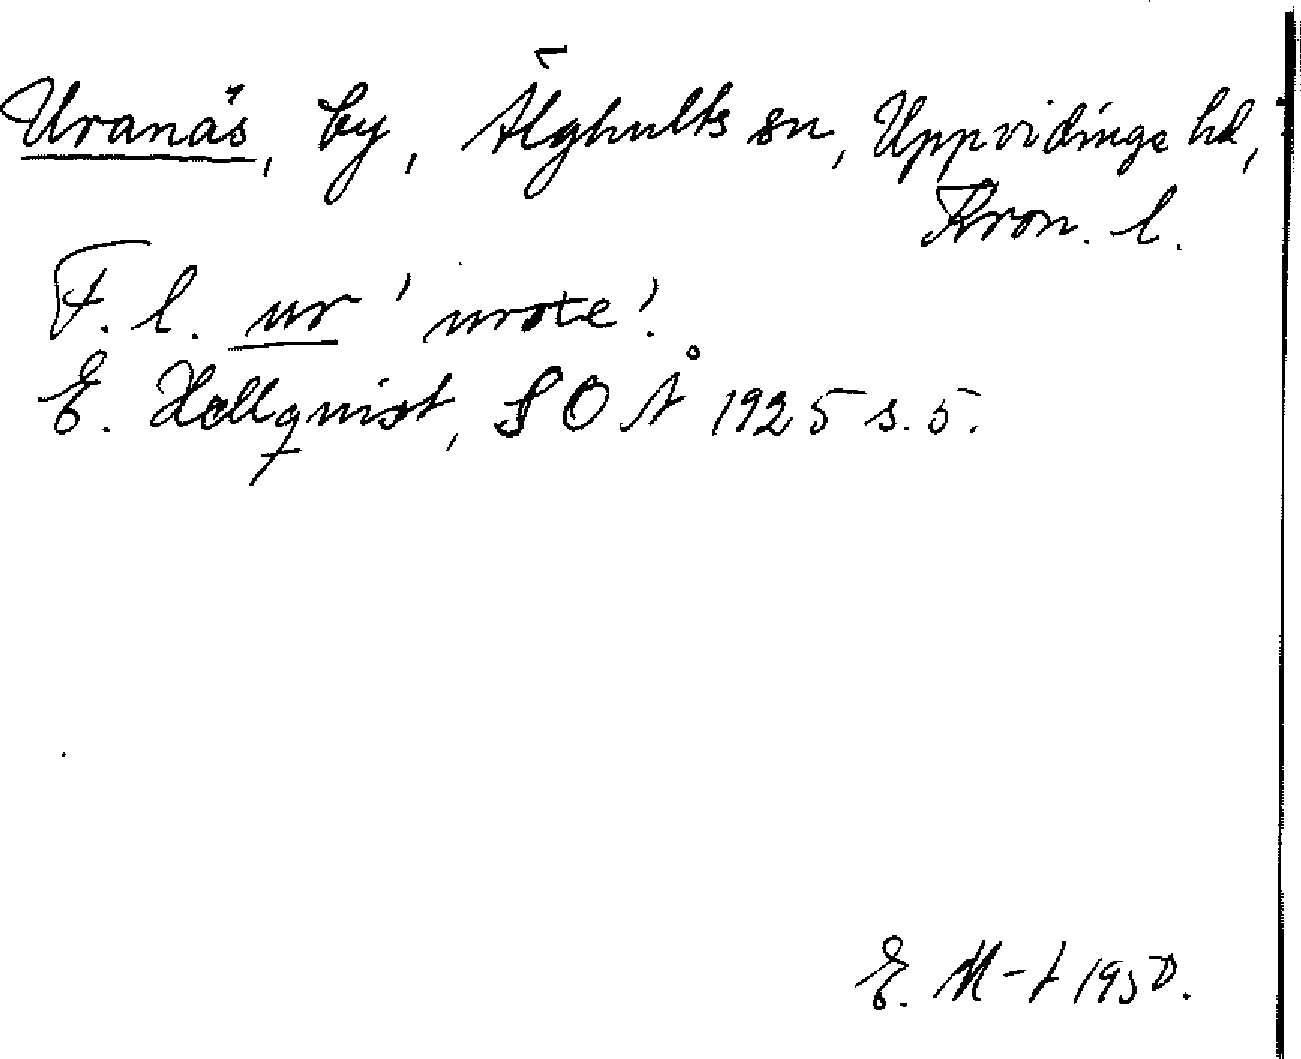 Uranäs, by, Älghults sn, Uppvidinge hd,
Kron. l.
F. l. ur 'uroxe'.
E. Hellquist, SOÅ 1925 s. 5.
E. M-t 1950.